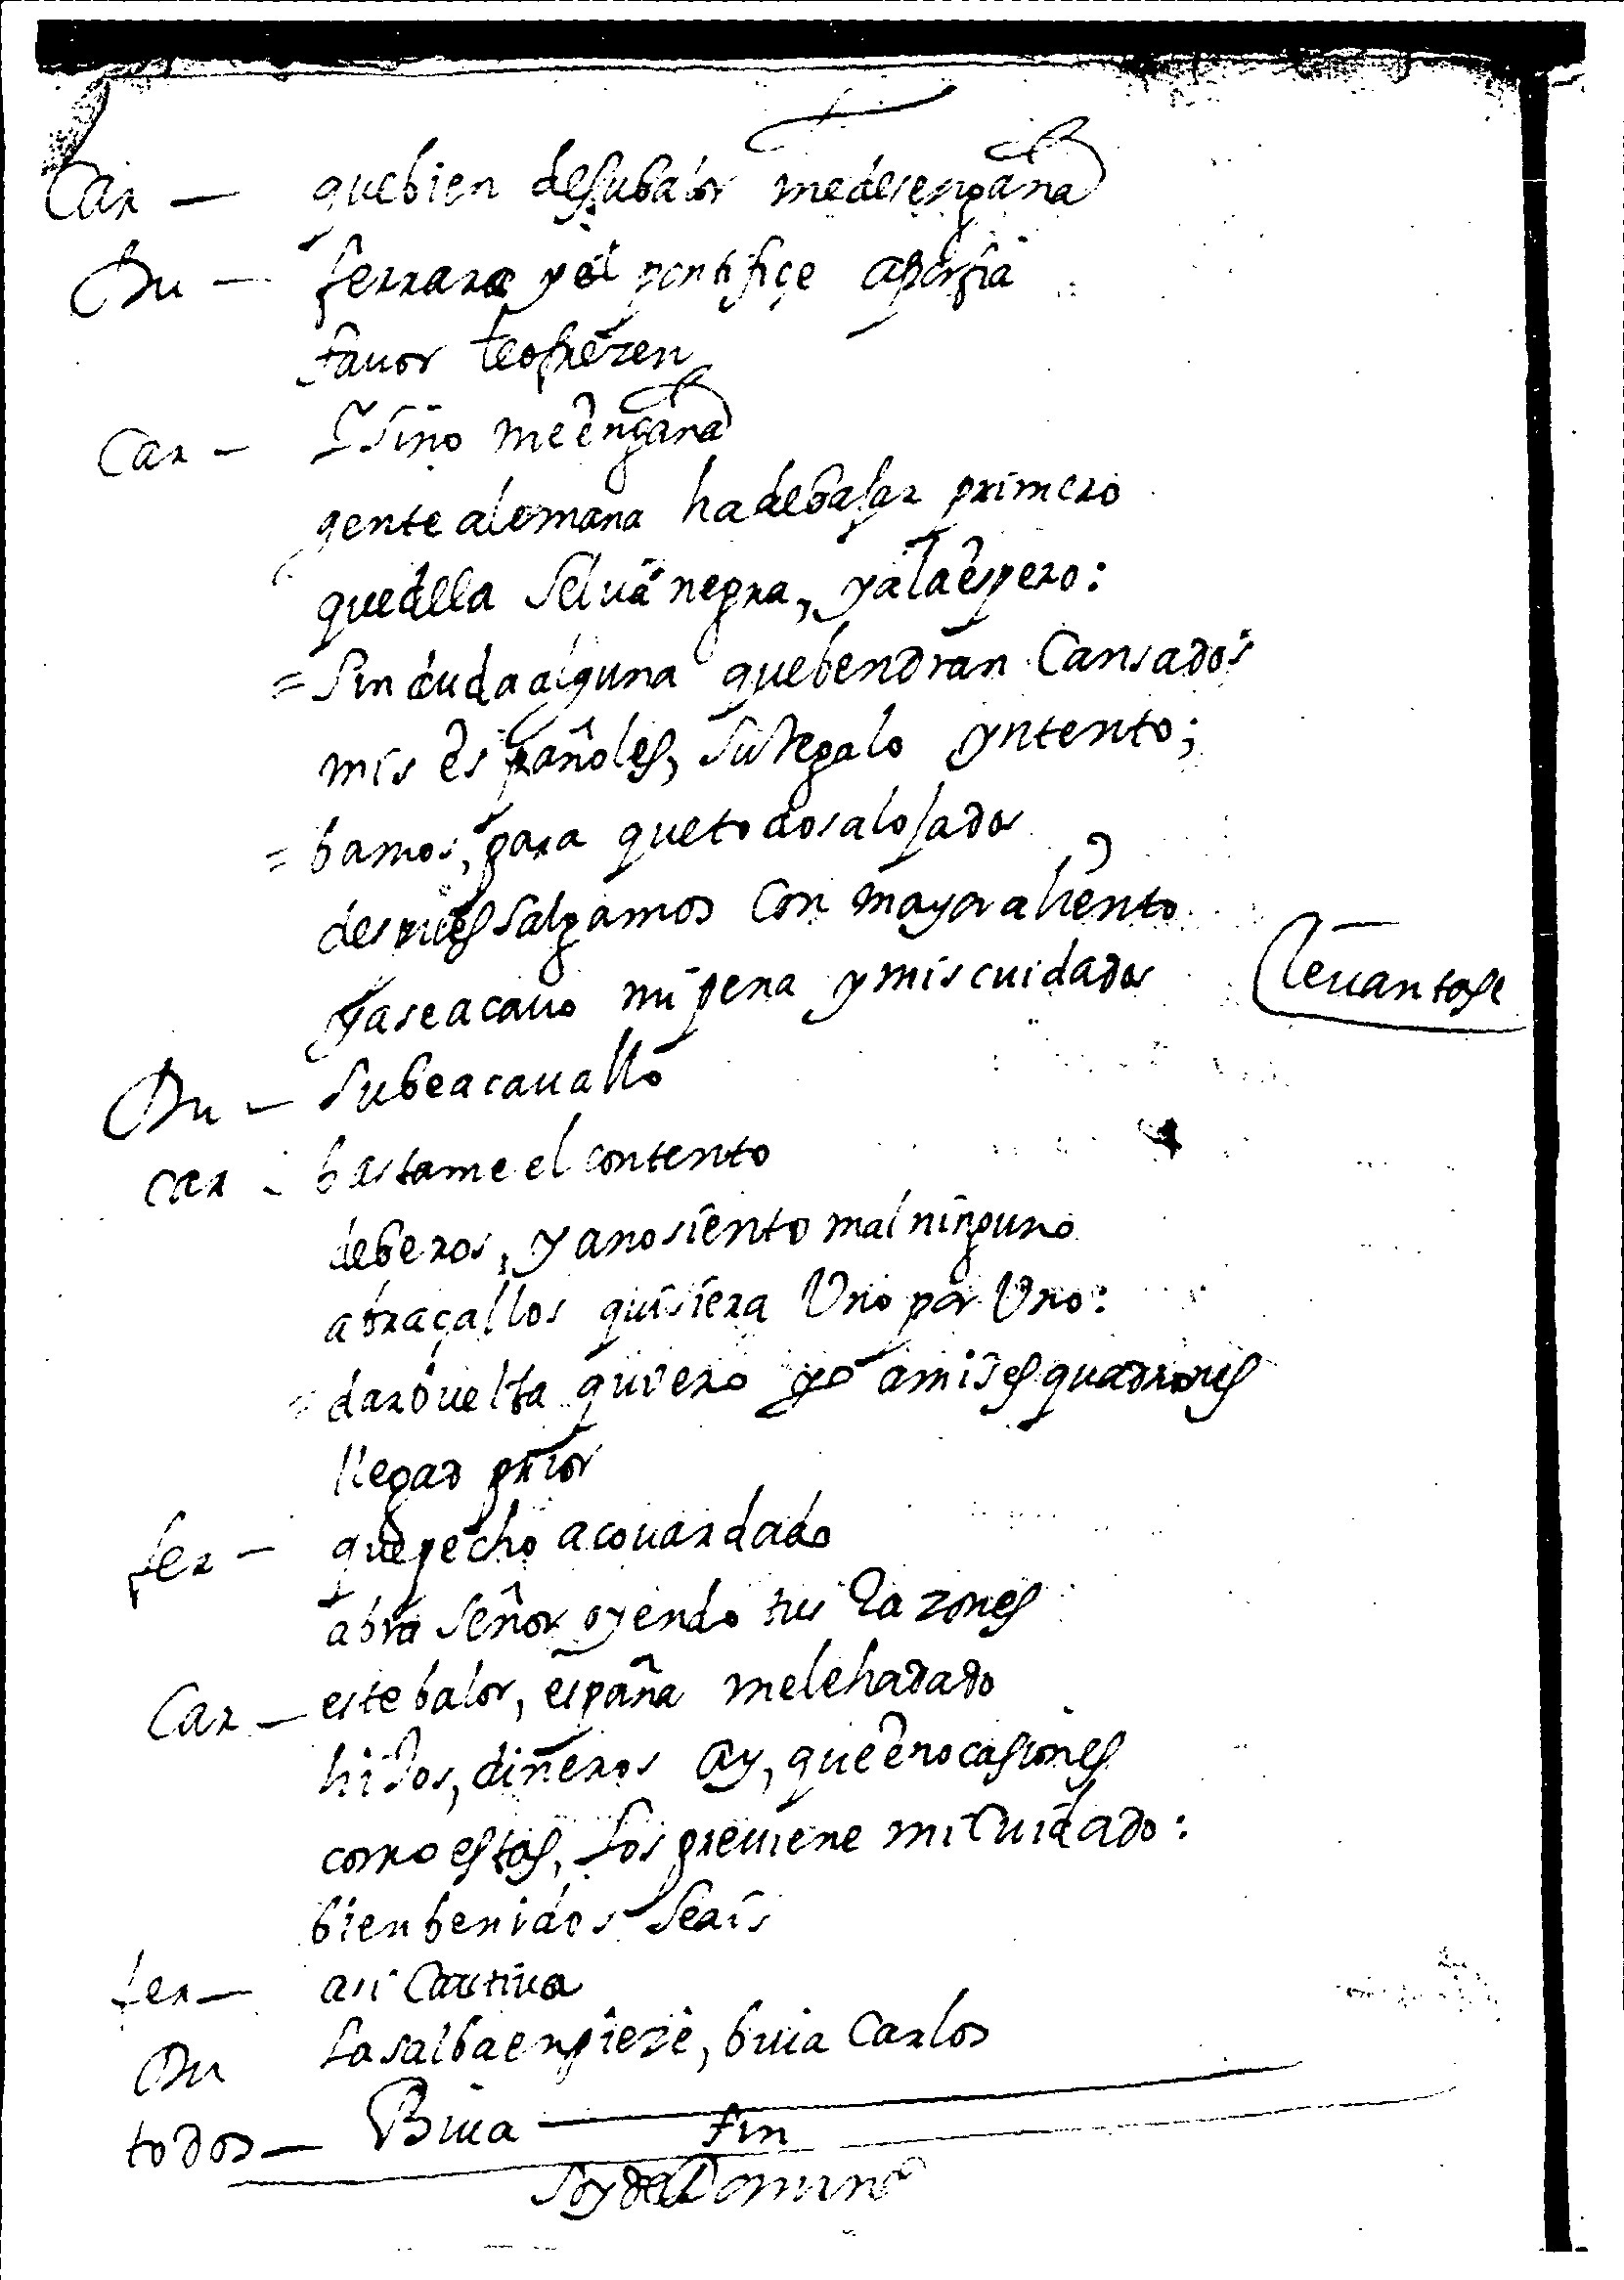 Car — que bien de su balor me desengaña
Du — ferrara y el pontifiçe aporfia
fauor te ofrezen
Car — I si no me engaña
gente alemana ha de bajar primero
que de lla selua negra, ya la espero:
= sin duda alguna que bendran Cansados
mis españoles, su Regalo yntento;
= bamos, para que todos alojados
despues salgamos Con mayor aliento
ya se acauo mi pena y mis cuidados
leuantase
Du — sube a cauallo
car - bastame el contento
de beros, ya no siento mal ninguno
abraçallos quisiera Uno por Uno:
= dar buelta quiero yo a mis esquadrones
llegad prior
fer — que pecho acouardado
abra señor oyendo tus Razones
Car — este balor, españa me le ha dado
hijos, dineros ay, que en ocasiones
como estas, los preuiene mi Cuidado:
bien benidos seais
fer — asi Cautiua
Du la salba enpieze, biua Carlos
todos — Biua
fin
Soy de Domingo